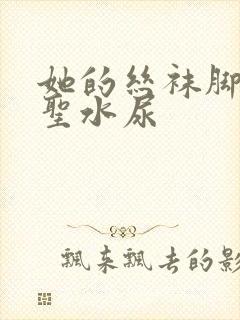 她的丝袜脚
聖水尿
飘来飘去的影